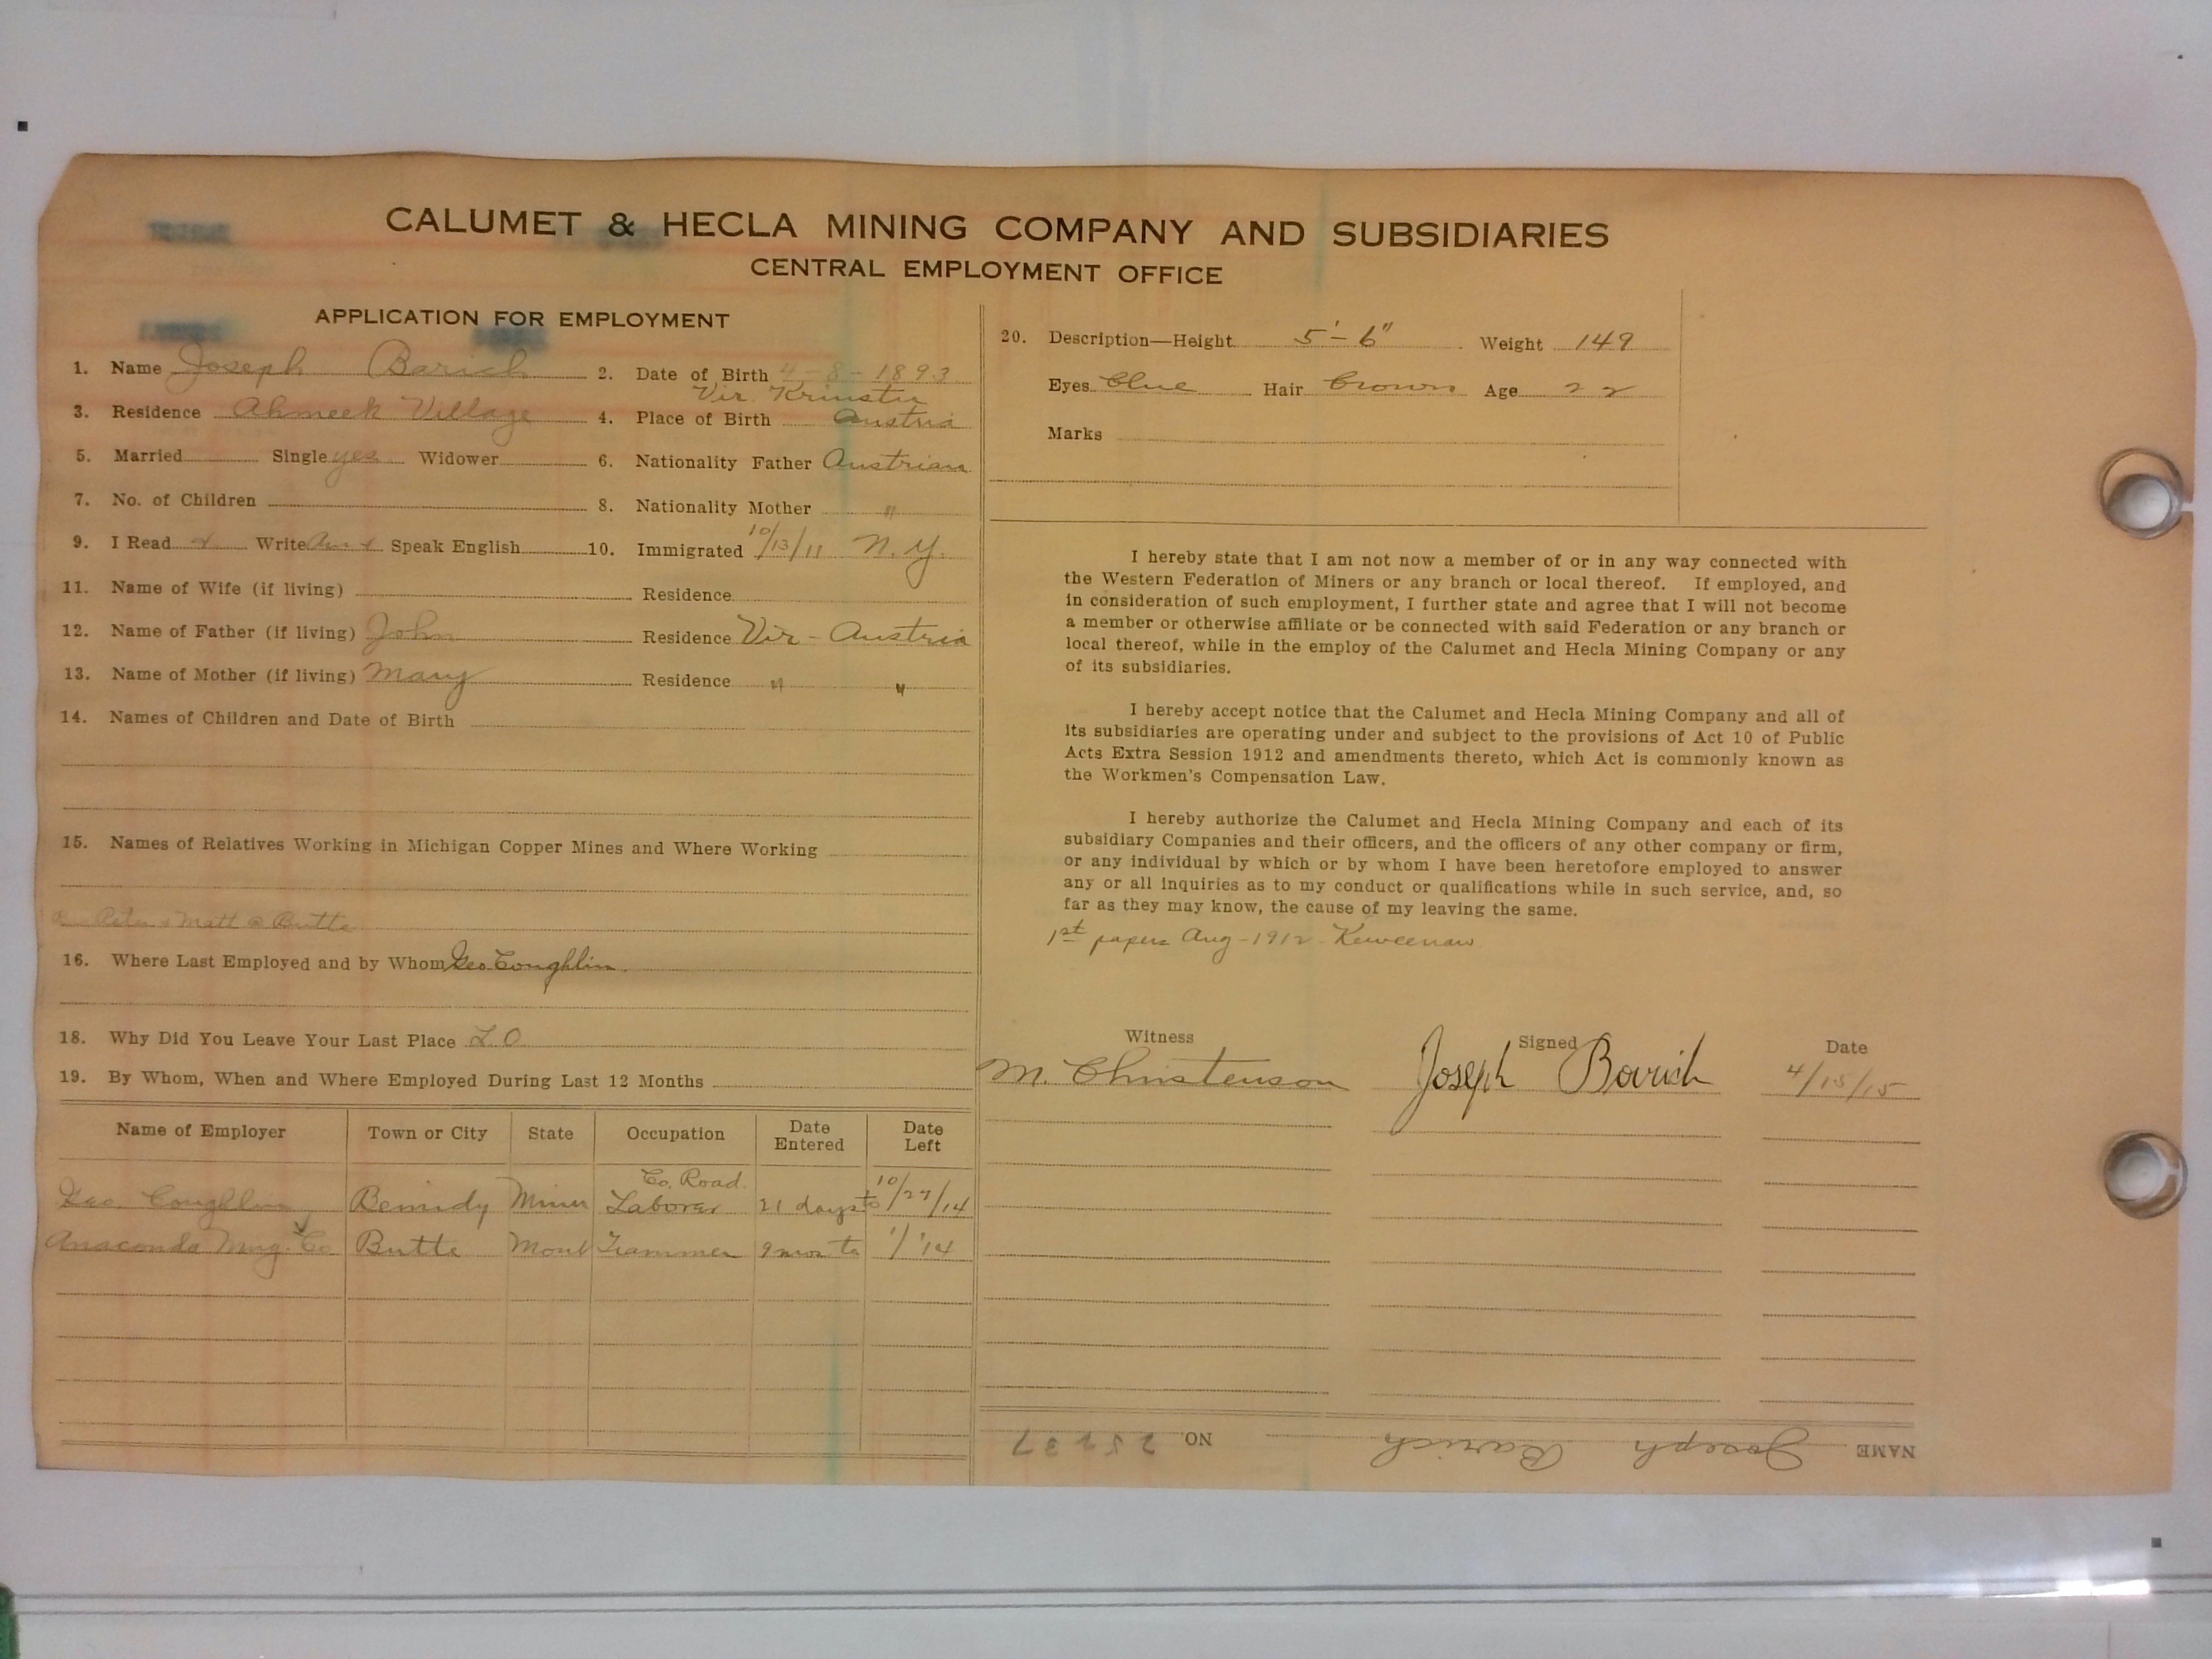 CALUMET & HECLA MINING COMPANY AND SUBSIDIARIES
CENTRAL EMPLOYMENT OFFICE
APPLICATION FOR EMPLOYMENT
1. Name Joseph Barich 2. Date of Birth 4-8-1893
Vir
3. Residence Ahmeek Village 4. Place of Birth Austria
5. Married Single yes Widower 6. Nationality Father Austrian
7. No. of Children 8. Nationality Mother "
9. I Read Write Speak English 10. Immigrated 10/13/11 N.Y.
11. Name of Wife (if living) Residence
12. Name of Father (if living) John Residence Vir - Austria
13. Name of Mother (if living) Mary Residence " "
14. Names of Children and Date of Birth
15. Names of Relatives Working in Michigan Copper Mines and Where Working
Peter & Matt @ Butte
16. Where Last Employed and by Whom Geo. Coughlin.
18. Why Did You Leave Your Last Place L.O
19. By Whom, When and Where Employed During Last 12 Months
Name of Employer Town or City State Occupation Date Entered Date Left
Co. Road
Geo. Coughlin Laborer 21 days to 10/27/14
Anaconda Mng. Co Butte Mont Trammer 9 mos to 1/'14
20. Description—Height 5'-6" Weight 149
Eyes blue Hair brown Age 22
Marks
I hereby state that I am not now a member of or in any way connected with
the Western Federation of Miners or any branch or local thereof. If employed, and
in consideration of such employment, I further state and agree that I will not become
a member or otherwise affiliate or be connected with said Federation or any branch or
local thereof, while in the employ of the Calumet and Hecla Mining Company or any
of its subsidiaries.
I hereby accept notice that the Calumet and Hecla Mining Company and all of
its subsidiaries are operating under and subject to the provisions of Act 10 of Public
Acts Extra Session 1912 and amendments thereto, which Act is commonly known as
the Workmen's Compensation Law.
I hereby authorize the Calumet and Hecla Mining Company and each of its
subsidiary Companies and their officers, and the officers of any other company or firm,
or any individual by which or by whom I have been heretofore employed to answer
any or all inquiries as to my conduct or qualifications while in such service, and, so
far as they may know, the cause of my leaving the same.
1st papers Aug-1912 Keweenaw
Witness Signed Date
M. Christenson Joseph Bovrich 4/15/15
NAME Joseph Barich NO. 25237